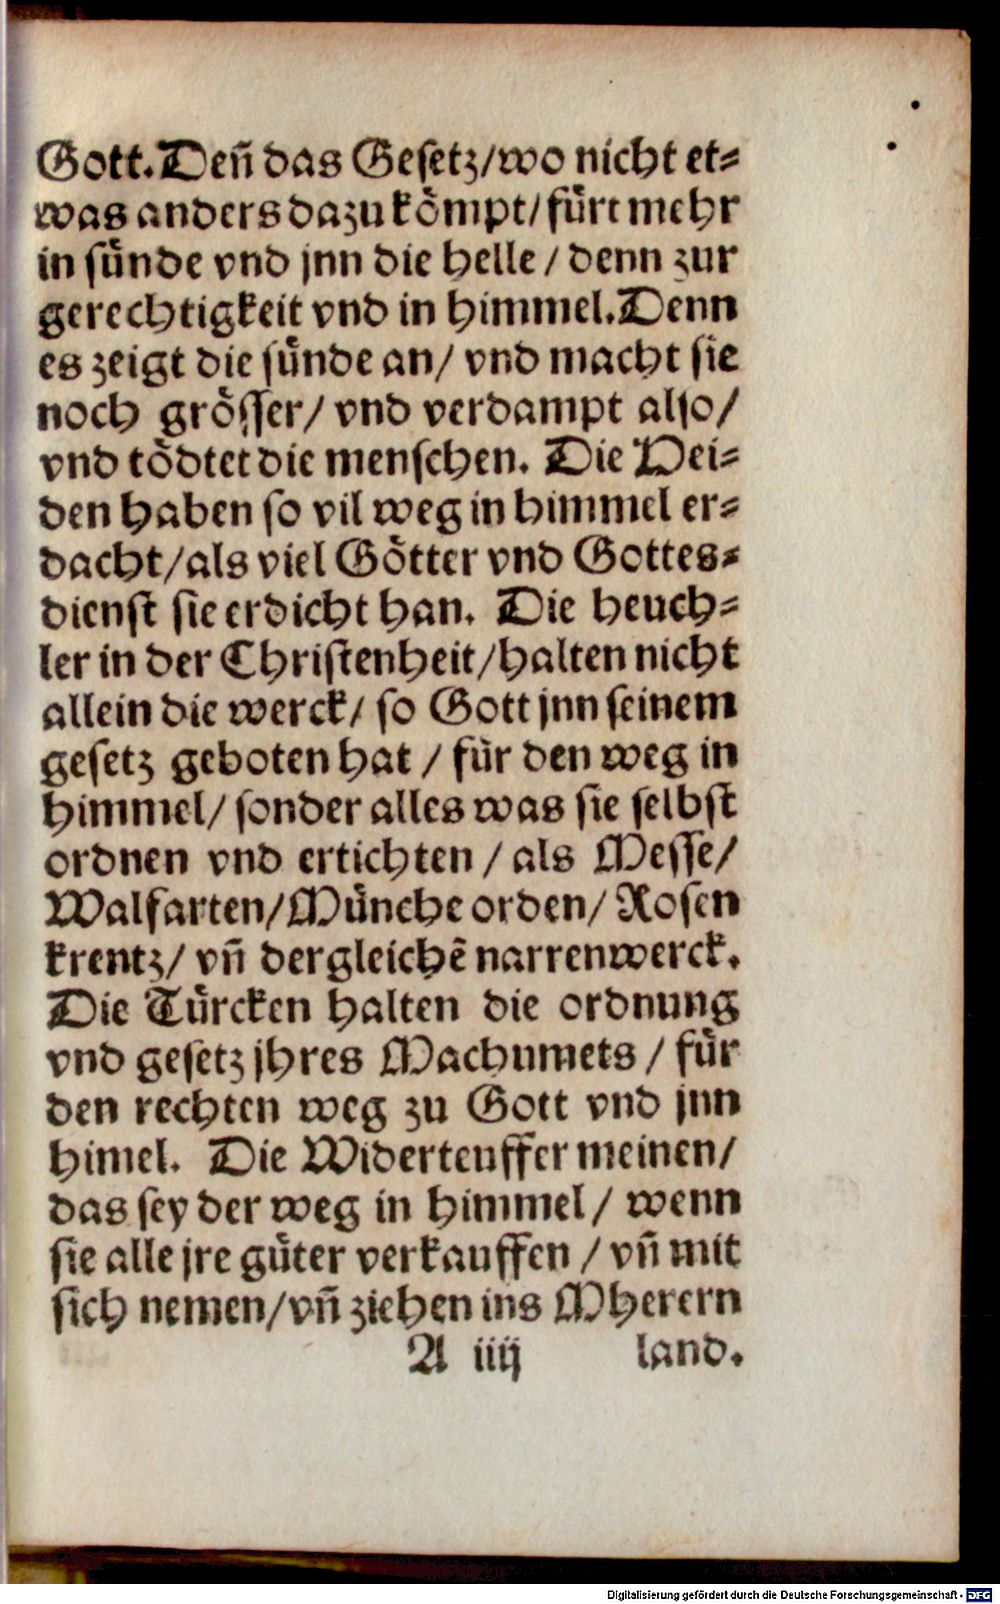 Gott. Deñ das Gesetz/wo nicht et⸗
was anders dazu kömpt/fürt mehr
in sünde vnd jnn die helle / denn zur
gerechtigkeit vnd in himmel. Denn
es zeigt die sünde an/ vnd macht sie
noch grösser/ vnd verdampt also/
vnd tödtet die menschen. Die Hei⸗
den haben so vil weg in himmel er⸗
dacht/als viel Götter vnd Gottes⸗
dienst sie erdicht han. Die heuch⸗
ler in der Christenheit/halten nicht
allein die werck/ so Gott jnn seinem
gesetz geboten hat / für den weg in
himmel/ sonder alles was sie selbst
ordnen vnd ertichten / als Messe/
Walfarten/Münche orden/ Rosen
krentz/ vñ dergleichē narrenwerck.
Die Türcken halten die ordnung
vnd gesetz jhres Machumets / für
den rechten weg zu Gott vnd jnn
himel. Die Widerteuffer meinen/
das sey der weg in himmel/ wenn
sie alle jre güter verkauffen / vñ mit
sich nemen/vñ ziehen ins Mherern
A iiij land.
Digitalisierung gefördert durch die Deutsche Forschungsgemeinschaft - DFG